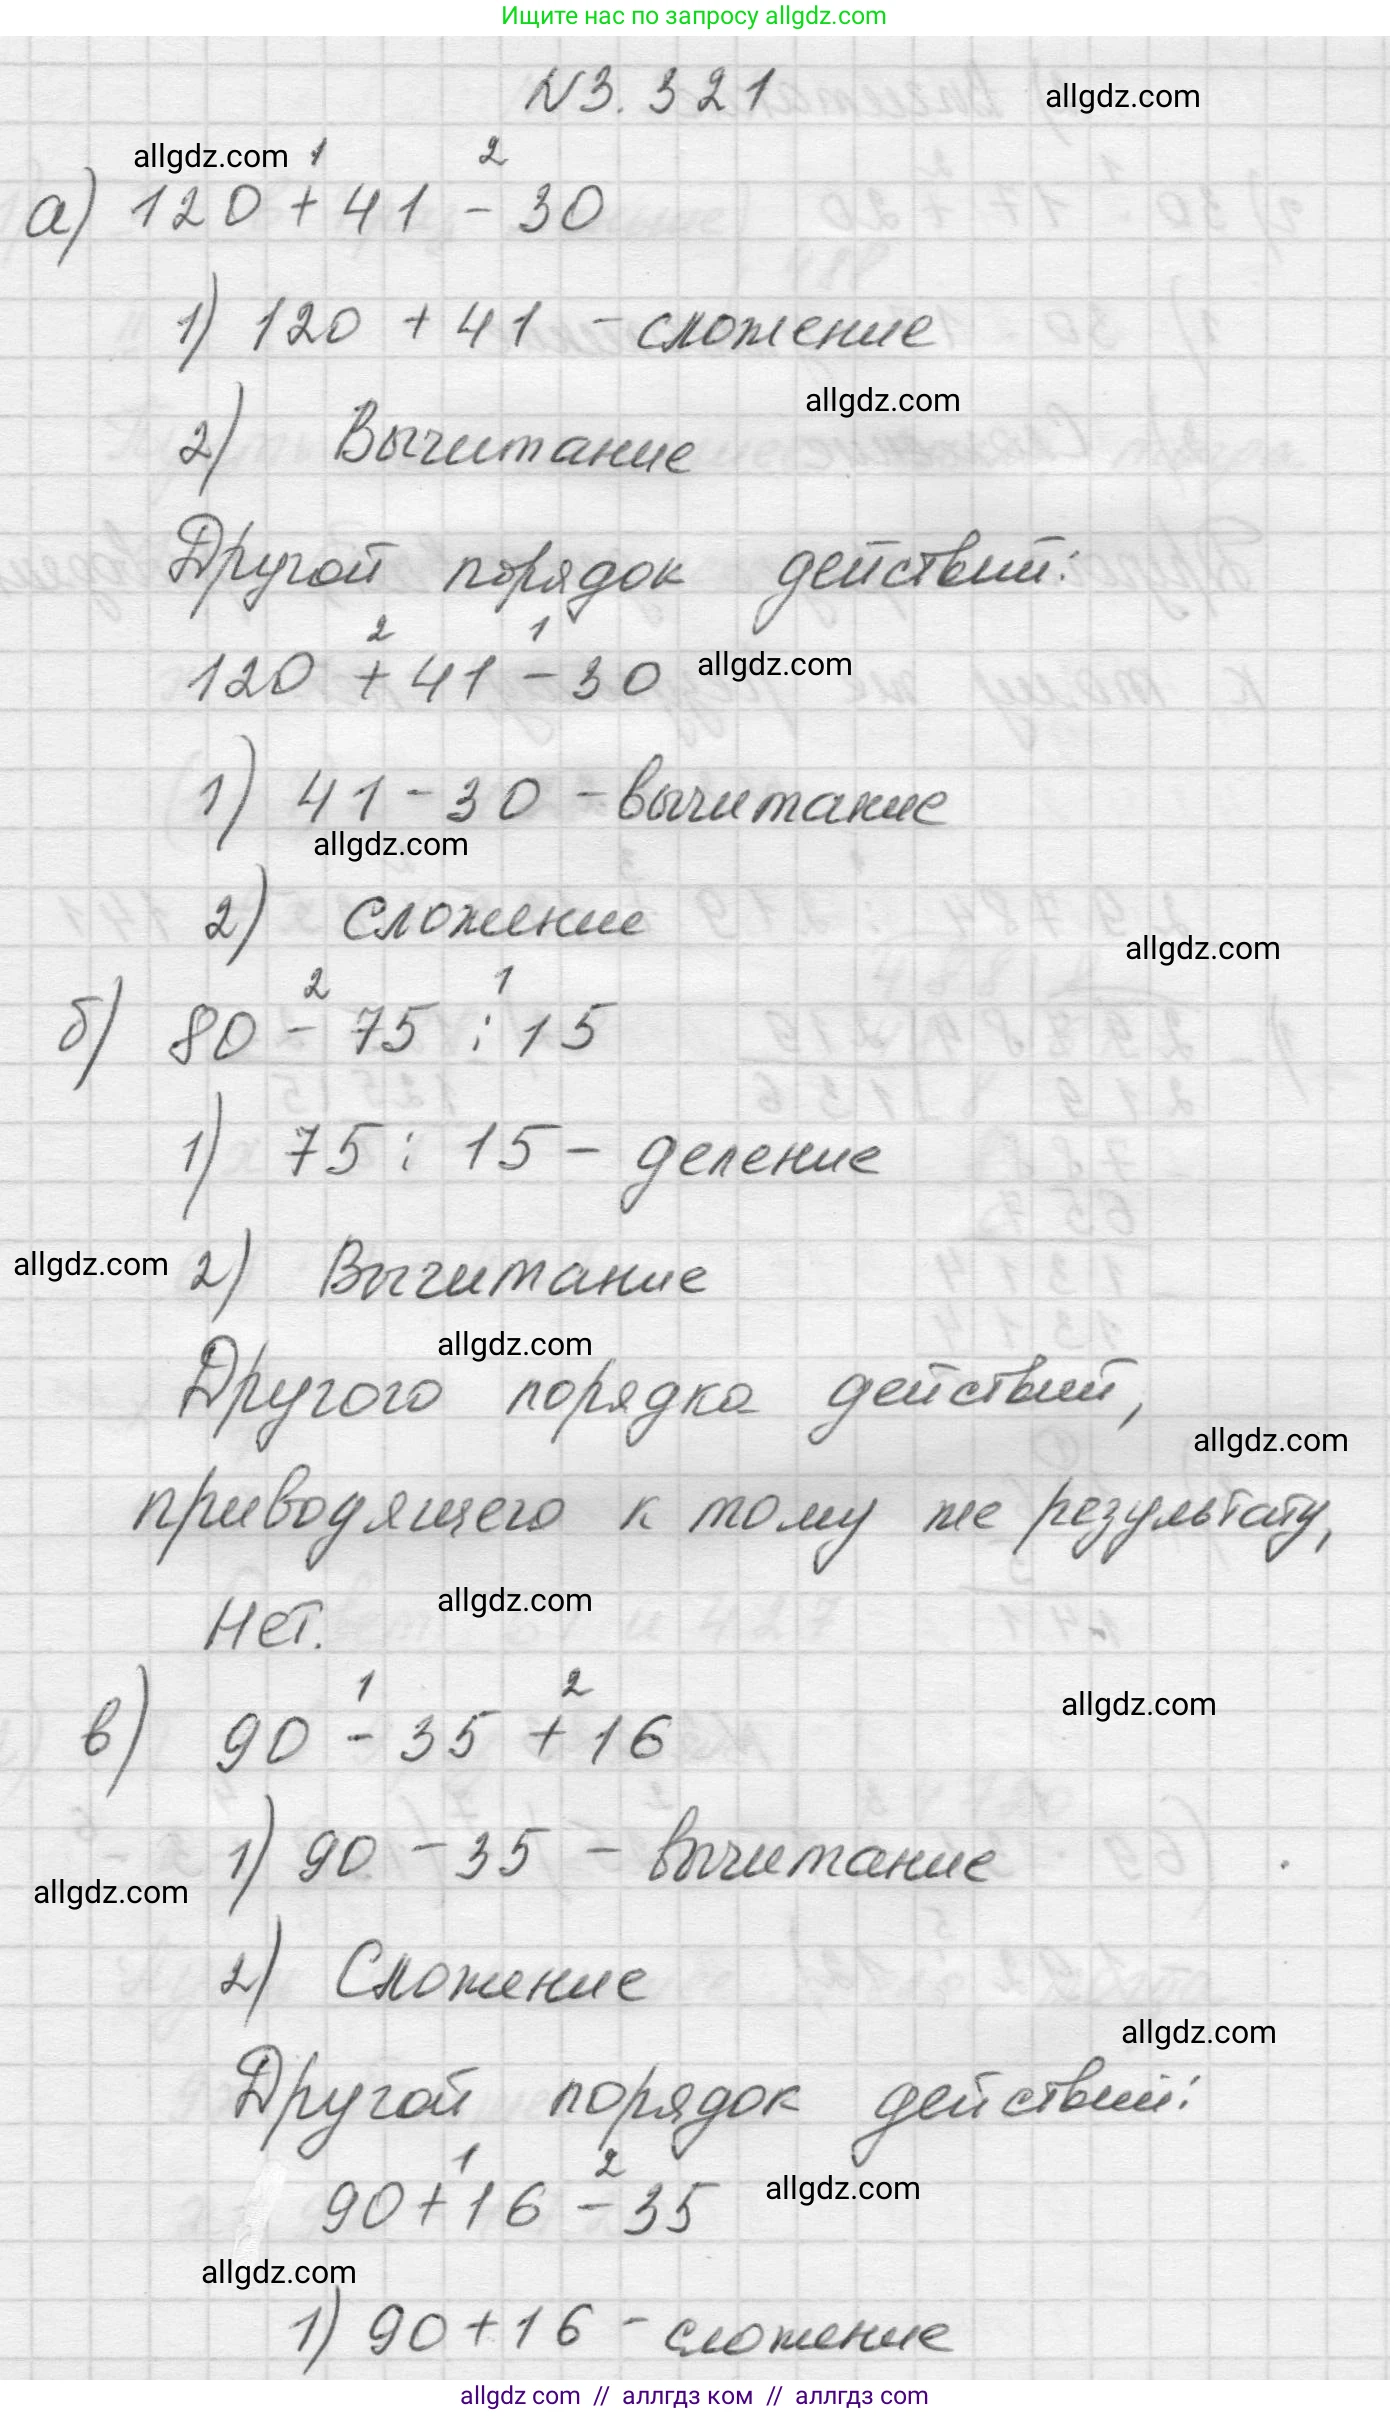 Ищите нас по запросу allgdz.com
N3.321
allgdz.com
allgdz.com 1 2
а) 120 + 41 - 30
1) 120 + 41 - сложение
allgdz.com
2) Вычитание
Другой порядок действий:
2 1
120 + 41 - 30 allgdz.com
1) 41 - 30 - вычитание
allgdz.com
2) сложение
allgdz.com
2 1
б) 80 - 75 : 15
1) 75 : 15 - деление
allgdz.com 2) Вычитание
allgdz.com
Другого порядка действий,
allgdz.com
приводящего к тому же результату,
allgdz.com
нет.
1 2
allgdz.com
в) 90 - 35 + 16
1) 90 - 35 - вычитание
allgdz.com
2) Сложение
allgdz.com
Другой порядок действий:
1 2
90 + 16 - 35 allgdz.com
allgdz.com
1) 90 + 16 - сложение
allgdz.com // аллгдз ком // аллгдз com